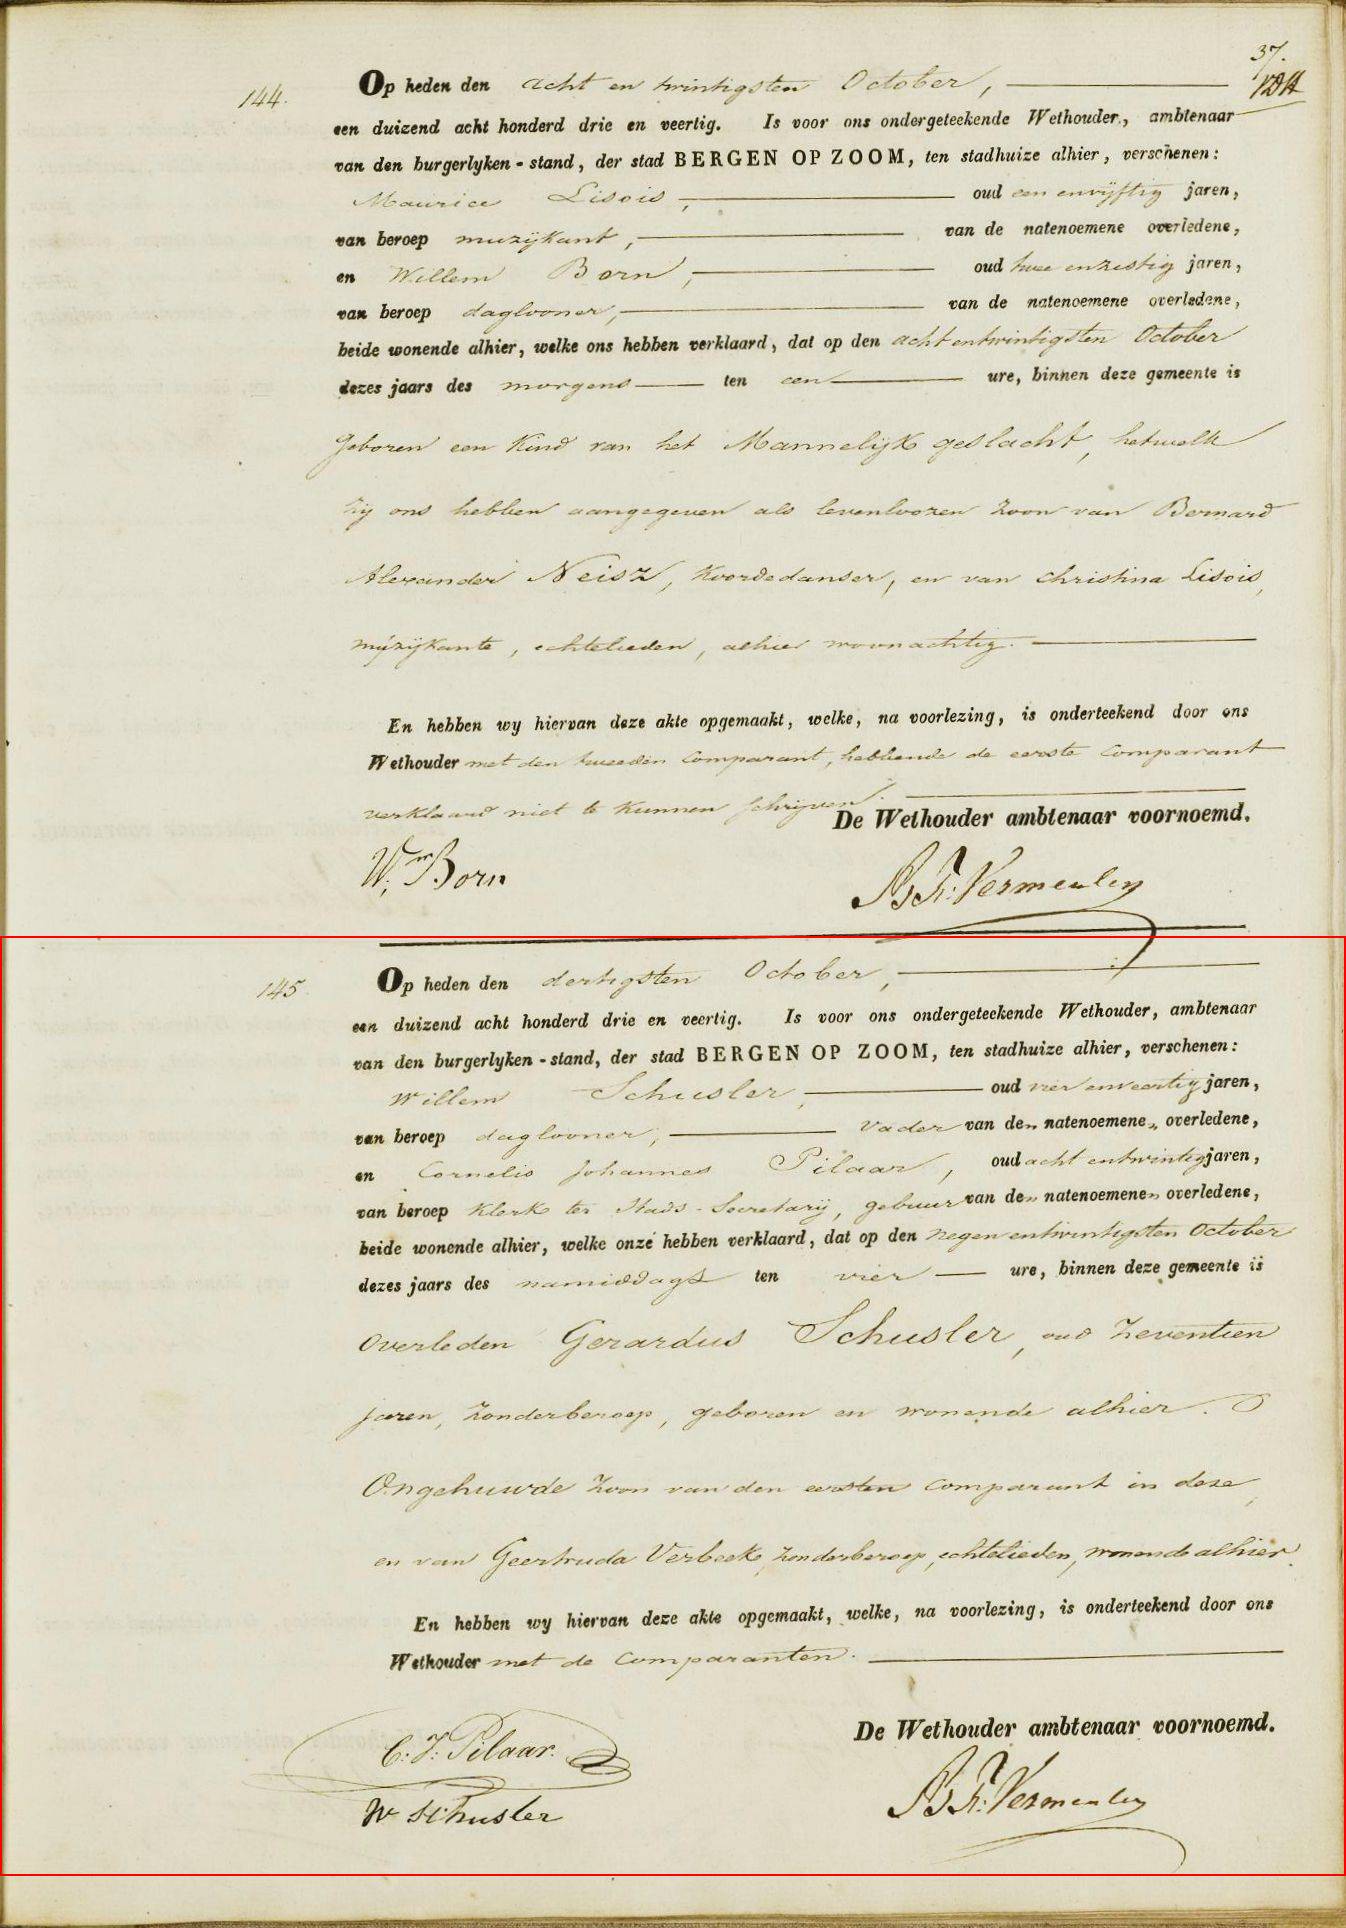 37.
VDH
144.
Op heden den acht en twintigsten October,
een duizend acht honderd drie en veertig. Is voor ons ondergeteekende Wethouder, ambtenaar
van den burgerlyken-stand, der stad BERGEN OP ZOOM, ten stadhuize alhier, verschenen:
Maurice Lisois, oud een envijftig jaren,
van beroep muzijkant, van de natenoemene overledene,
en Willem Born, oud twee enzestig jaren,
van beroep daglooner, van de natenoemene overledene,
beide wonende alhier, welke ons hebben verklaard, dat op den acht entwintigsten October
dezes jaars des morgens ten een ure, binnen deze gemeente is
geboren een Kind van het Mannelijk geslacht, hetwelk
zij ons hebben aangegeven als levenloozen zoon van Bernard
Alexander Neisz, koordedanser, en van Christina Lisois,
muzijkante, echtelieden, alhier woonachtig.
En hebben wy hiervan deze akte opgemaakt, welke, na voorlezing, is onderteekend door ons
Wethouder met den tweeden Comparant, hebbende de eerste Comparant
verklaard niet te kunnen schrijven.
De Wethouder ambtenaar voornoemd.
Wm. Born
As. Fr: Vermeulen
145.
Op heden den dertigsten October,
een duizend acht honderd drie en veertig. Is voor ons ondergeteekende Wethouder, ambtenaar
van den burgerlyken-stand, der stad BERGEN OP ZOOM, ten stadhuize alhier, verschenen:
Willem Schusler, oud vier enveertig jaren,
van beroep daglooner, Vader van den natenoemenen overledene,
en Cornelis Johannes Pilaar, oud acht entwintig jaren,
van beroep Klerk ter Stads-Secretarij, gebuur van den natenoemenen overledene,
beide wonende alhier, welke onze hebben verklaard, dat op den negen entwintigsten October
dezes jaars des namiddags ten vier ure, binnen deze gemeente is
Overleden Gerardus Schusler, oud zeventien
jaren, zonder beroep, geboren en wonende alhier.
Ongehuwde zoon van den eersten Comparant in deze,
en van Geertruda Verbeek, zonder beroep, echtelieden, wonende alhier.
En hebben wy hiervan deze akte opgemaakt, welke, na voorlezing, is onderteekend door ons
Wethouder met de Comparanten.
De Wethouder ambtenaar voornoemd.
C: J: Pilaar.
W Schusler
As. Fr: Vermeulen